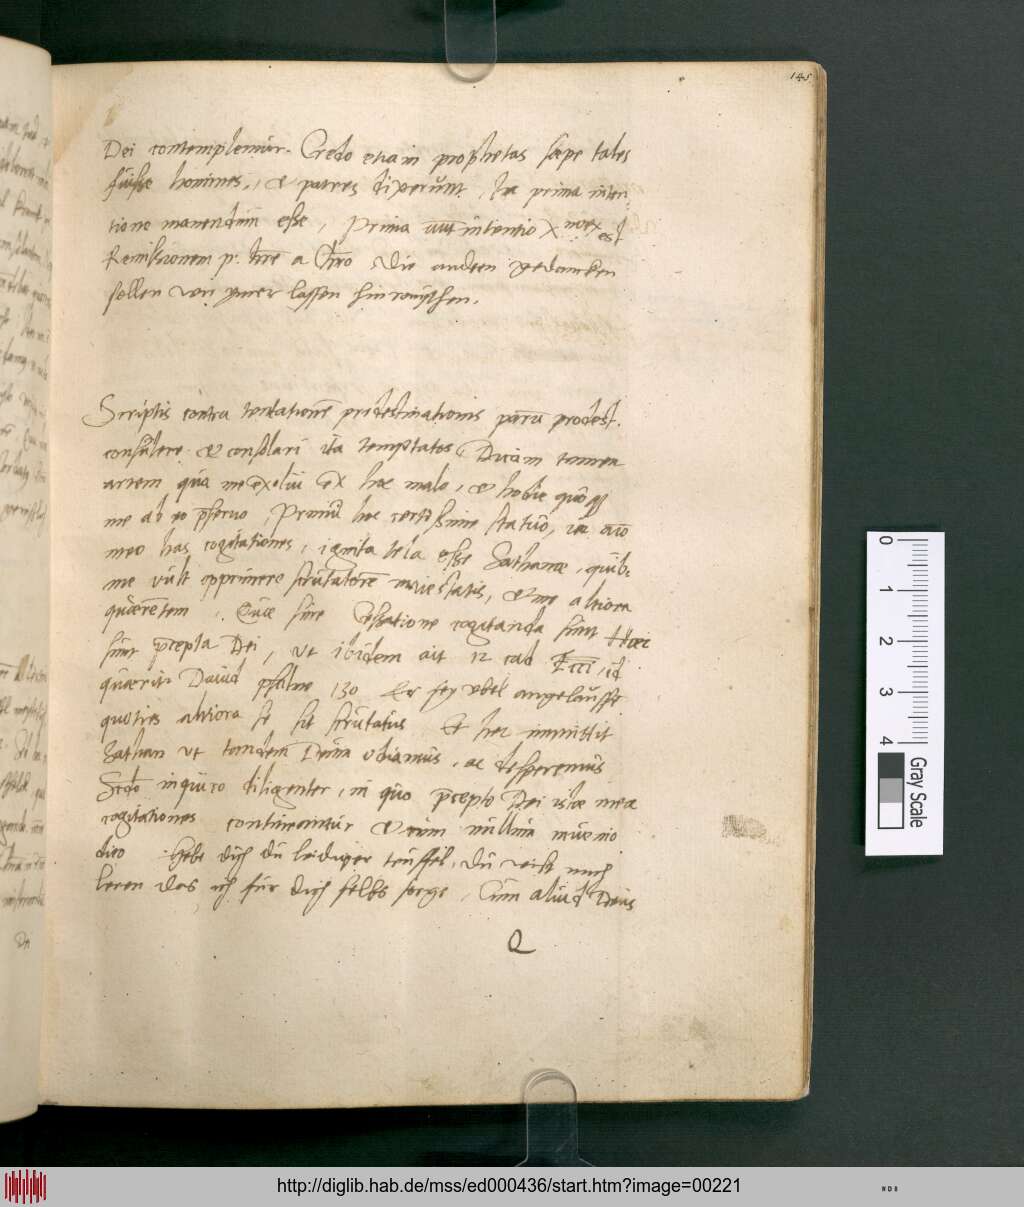 145
Dei contemplemur. Credo etiam prophetas sæpe tales
fuisse homines, & patres dixerunt, In prima inten
tione manendum esse, Prima aut intentio X est
Remissionem a die andern gedancken
sollen von ymer lassen hin
Scriptis contra tentationē predestinationis parū prodest.
consulere & consolari ita temptatos Dicam tamen
artem qua me exolui ex hoc malo, & hodie quoq
me ab eo pservo, Primū hoc certissime statuo, in
meo has cogitationes, ignita tela esse Sathanæ, quib
me vult opprimere scrutatorē maiestatis, & me altiora
quærentem. Quæ sine cessatione cogitanda sunt Hæc
sunt pcepta Dei, ut ibidem ait 12 cab Ecci, id
quærit Dauid psalmo 130 Er sey vbel angelauffe
quoties altiora se sit scrutatus Et hec immittit
Sathan ut tandem Deum odiamus, ac desperemus
Scdo inquiro diligenter, in quo pcepto Dei istæ meæ
cogitationes contineantur & cum nullum invenio
dico Hebe dich du leidiger teuffel, du wilst mich
leren das ich für dich selbs sorge, Cum aliud Deus
Q
De
0
1
2
3
4
Gray Scale
http://diglib.hab.de/mss/ed000436/start.htm?image=00221